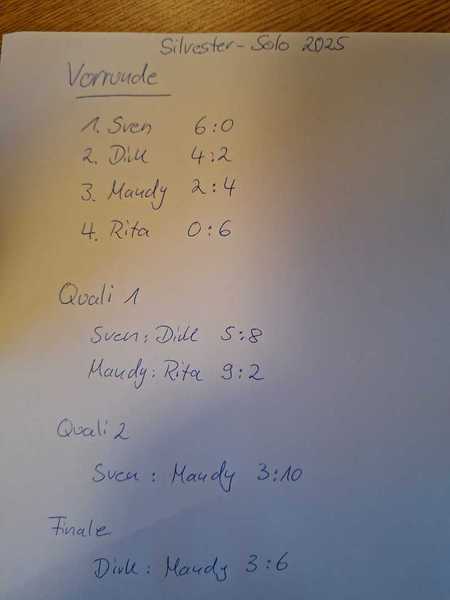 Silvester-Solo 2025
Vorrunde
1. Sven 6:0
2. Dirk 4:2
3. Mandy 2:4
4. Rita 0:6
Quali 1
Sven : Dirk 5:8
Mandy : Rita 9:2
Quali 2
Sven : Mandy 3:10
Finale
Dirk : Mandy 3:6